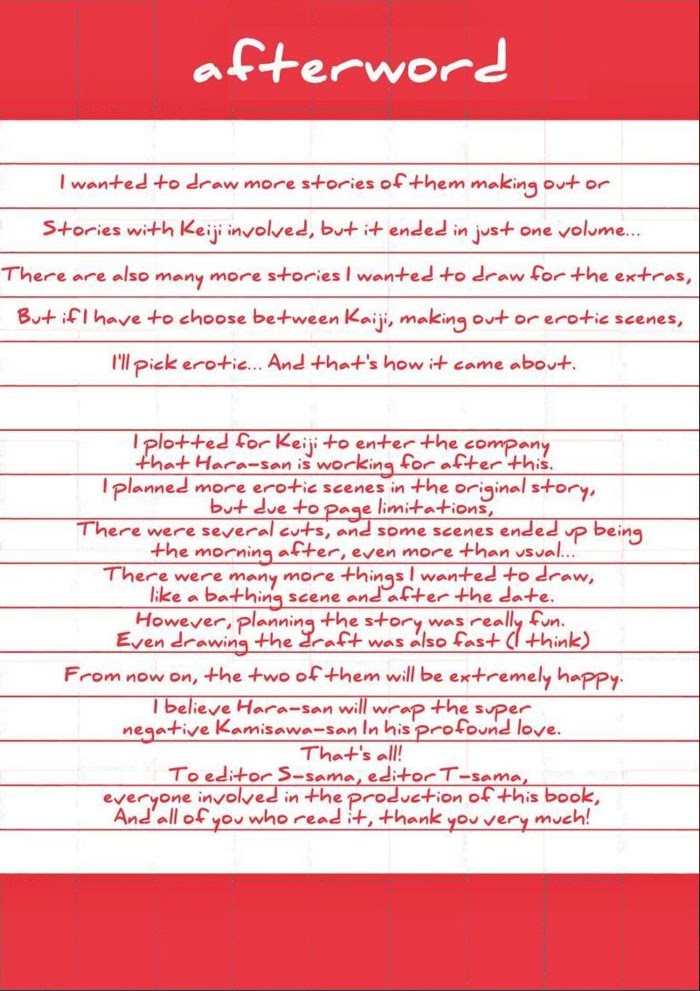 afterword
I wanted to draw more stories of them making out or
Stories with Keiji involved, but it ended in just one volume...
There are also many more stories I wanted to draw for the extras,
But if I have to choose between Kaiji, making out or erotic scenes,
I'll pick erotic... And that's how it came about.
I plotted for Keiji to enter the company
that Hara-san is working for after this.
I planned more erotic scenes in the original story,
but due to page limitations,
There were several cuts, and some scenes ended up being
the morning after, even more than usual...
There were many more things I wanted to draw,
like a bathing scene and after the date.
However, planning the story was really fun.
Even drawing the draft was also fast (I think)
From now on, the two of them will be extremely happy.
I believe Hara-san will wrap the super
negative Kamisawa-san In his profound love.
That's all!
To editor S-sama, editor T-sama,
everyone involved in the production of this book,
And all of you who read it, thank you very much!